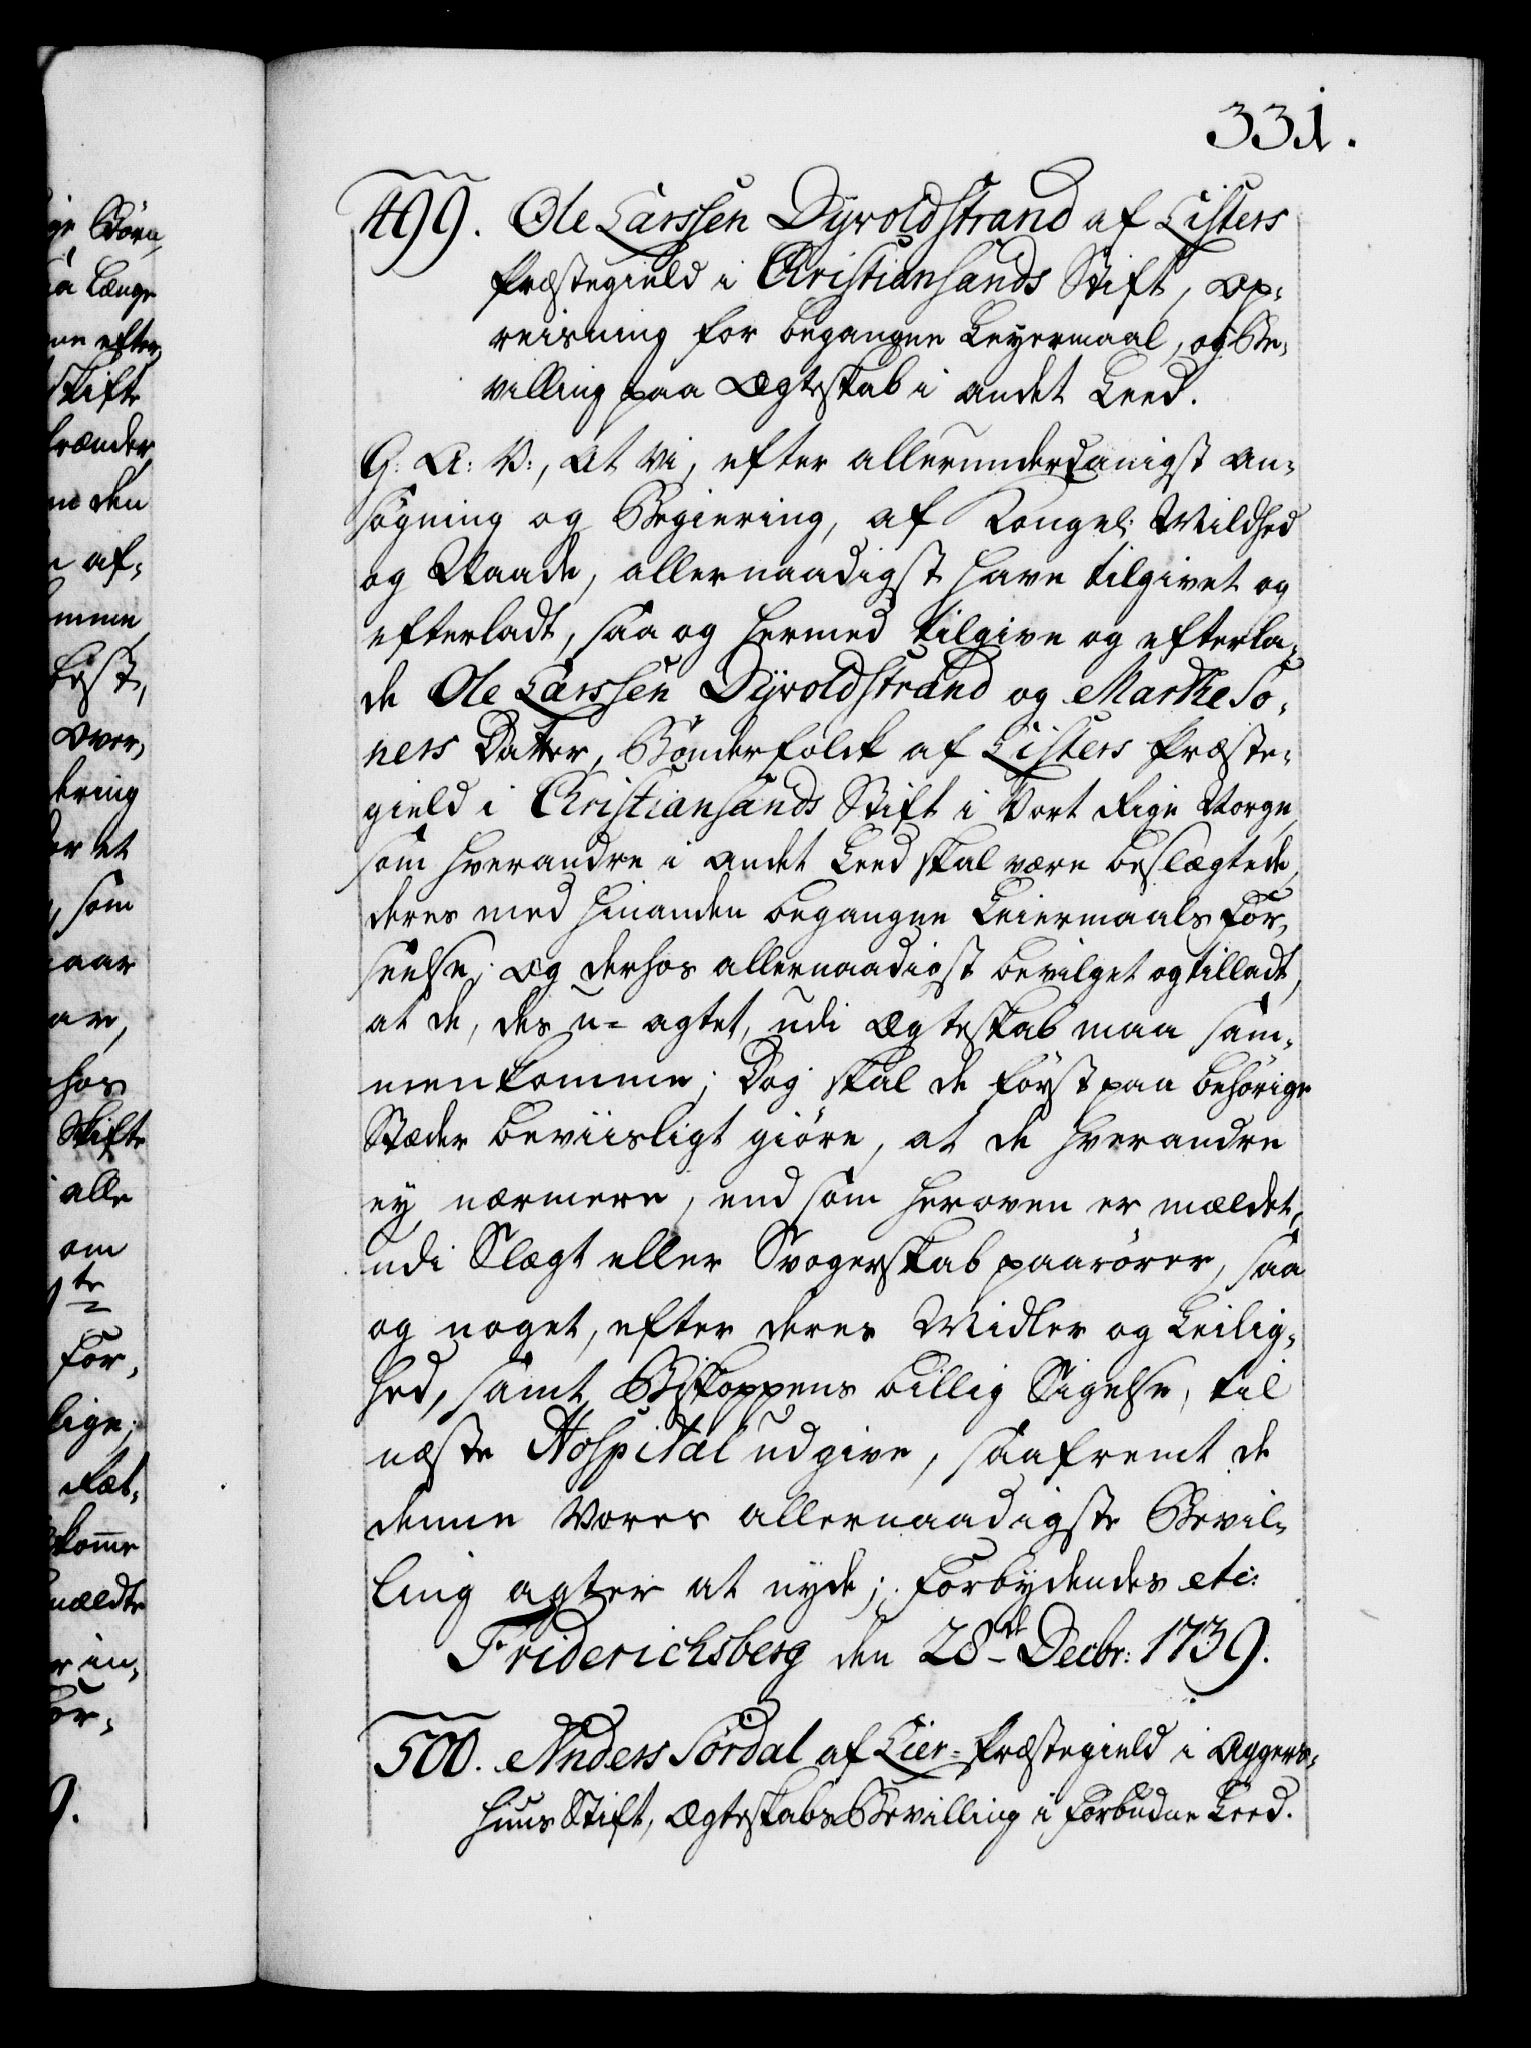 ige Börn,
saa længe
ne efter
Skifte
frænder
m den
n af-
omme
best,
Over-
dering
for et
, som
aar
are,
hos
Skifte
i alle
om
te
For-
lige;
Ræt-
komme
meldte
r in-
For-
9.
331.
499. Ole Larssen Dyvoldstrand af Listers
Præstegield i Christiansands Stift, Op-
reisning for begangne Leyermaal, og Be-
villing paa Ægteskab i andet Leed.
G: A: V:, At Vi, efter allerunderdanigst An-
søgning og Begiering, af Kongel: Mildhed
og Naade, allernaadigst have tilgivet og
efterladt, saa og hermed tilgive og efterla-
de Ole Larssen Dyvoldstrand og Marthe So-
ners Datter, Bønderfolck af Listers Præste-
gield i Christiansands Stift i Vort Rige Norge,
som hverandre i andet Leed skal være beslægtede,
deres med hinanden begangne Leiermaals For-
seelse; Og derhos allernaadigst bevilget og tilladt,
at de, des u-agtet, udi Ægteskab maa sam-
menkomme; Dog skal de først paa behørige
Stæder beviisligt giøre, at de hverandre
ey nærmere, end som heroven er mældet,
udi Slægt eller Svogerskab paarører, saa
og noget, efter deres Midler og Leilig-
hed, samt Biskoppens billig Sigelse, til
næste Hospital udgive, saafremt de
denne Vores allernaadigste Bevil-
ling agter at nyde; Forbydendes etc:
Friderichsberg den 28de Decbr: 1739.
500. Anders Sørdal af Lier-Præstegield i Aggers-
huus Stift, Ægteskabs Bevilling i forbudne Leed.